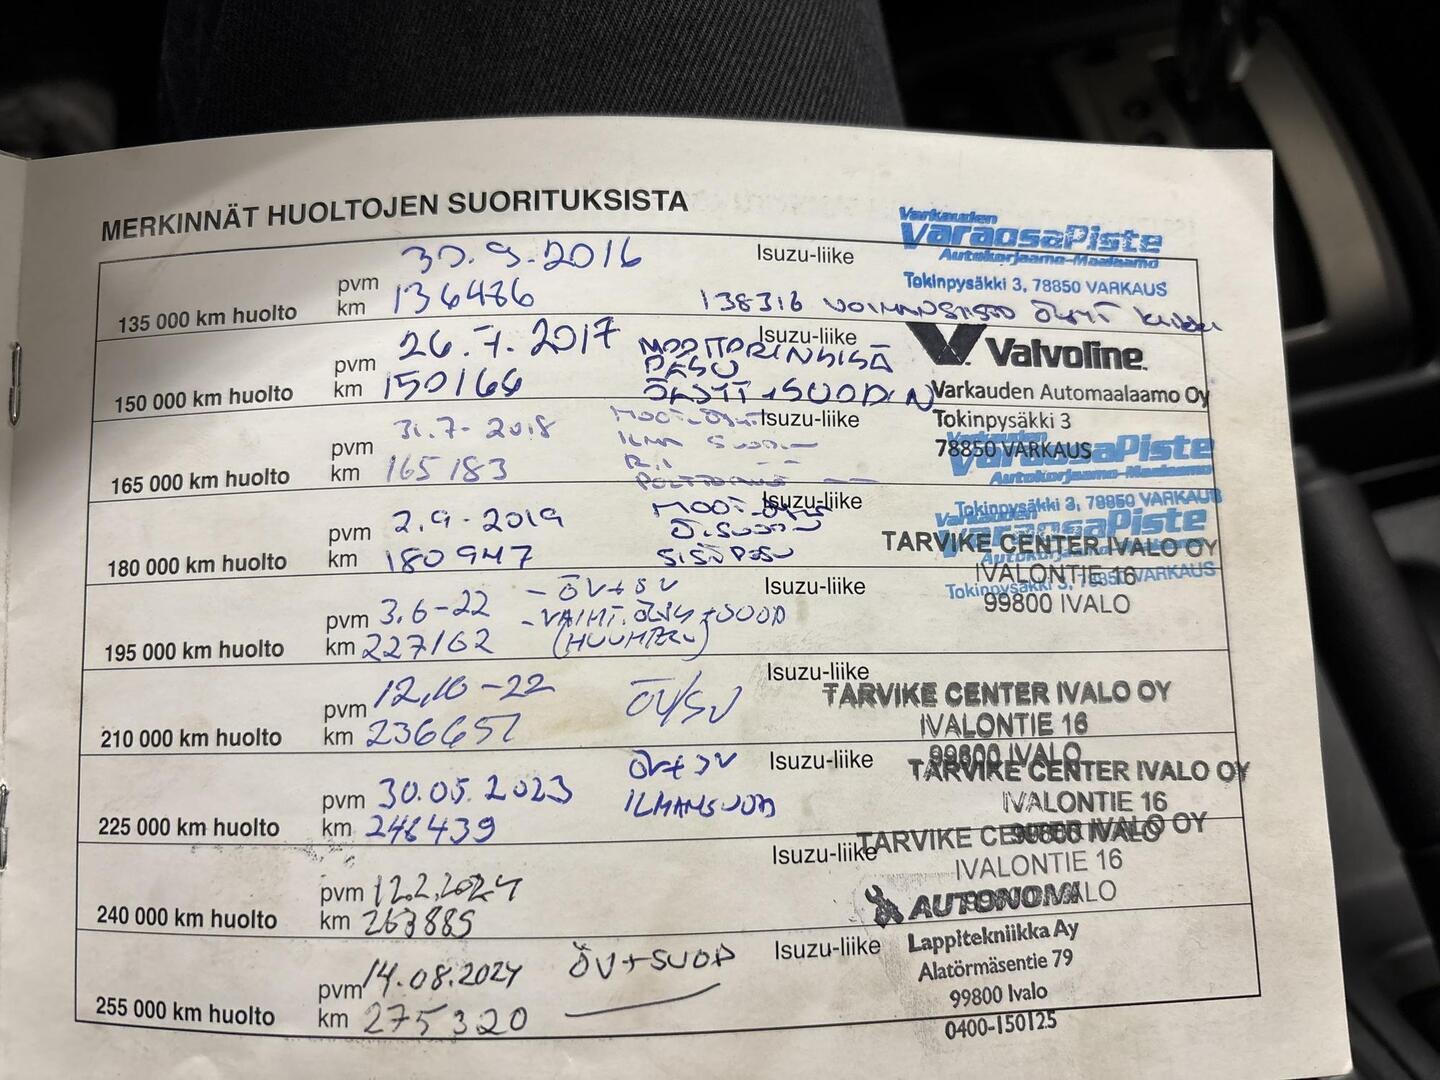 MERKINNÄT HUOLTOJEN SUORITUKSISTA
Varkauden
VaraosaPiste
Autokorjaamo-Maalaamo
Tokinpysäkki 3, 78850 VARKAUS
135 000 km huolto pvm 30.9.2016 Isuzu-liike
km 136486 138316 VOIMANSIIRTO ÖLJYT
150 000 km huolto pvm 26.7.2017 MOOTTORINSISÄ Isuzu-liike
PESU
km 150166 ÖLJYT + SUODIN
Valvoline
Varkauden Automaalaamo Oy
Tokinpysäkki 3
78850 VARKAUS
165 000 km huolto pvm 31.7-2018 Isuzu-liike
km 165183
ILMA SUODIN
Varkauden
VaraosaPiste
Autokorjaamo-Maalaamo
Tokinpysäkki 3, 78850 VARKAUS
180 000 km huolto pvm 2.9-2019 Isuzu-liike
Ö.SUODIN
km 180947 SISÄPESU
Varkauden
VaraosaPiste
Tokinpysäkki 3, 78850 VARKAUS
TARVIKE CENTER IVALO OY
IVALONTIE 16
99800 IVALO
195 000 km huolto pvm 3.6-22 - ÖV+SV Isuzu-liike
- VAIHT.ÖLJY+SUOD
km 227162 (HUUHTELU)
210 000 km huolto pvm 12.10-22 ÖV/SV Isuzu-liike
km 236657
TARVIKE CENTER IVALO OY
IVALONTIE 16
99800 IVALO
225 000 km huolto pvm 30.05.2023 ÖV+SV Isuzu-liike
km 248439 ILMANSUOD
TARVIKE CENTER IVALO OY
IVALONTIE 16
99800 IVALO
240 000 km huolto pvm 12.2.2024 Isuzu-liike
km 263889
TARVIKE CENTER IVALO OY
IVALONTIE 16
IVALO
255 000 km huolto pvm 14.08.2024 ÖV+SUOD Isuzu-liike
km 275320
AUTONOMI
Lappitekniikka Ay
Alatörmäsentie 79
99800 Ivalo
0400-150125